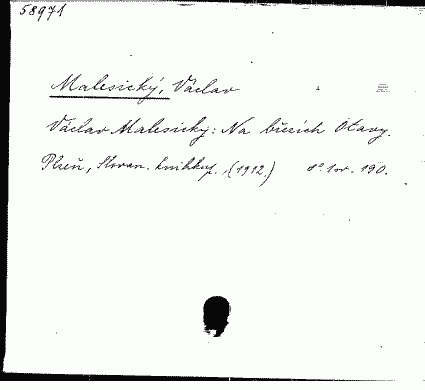 58971
Malesický, Václav
Václav Malesický: Na březích Otavy.
Plzeň, Slovan. knihkup., (1912.) 8° 1 sv. 190.